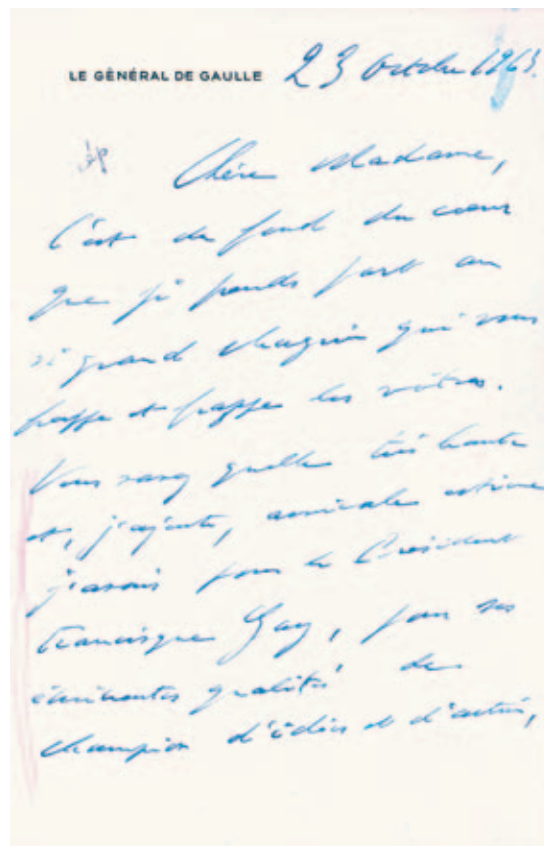 LE GÉNÉRAL DE GAULLE 23 Octobre 1963.
Chère Madame,
C'est du fond du cœur
que je prends part au
si grand chagrin qui vous
frappe et frappe les vôtres.
Vous savez quelle très haute
et, j'ajoute, amicale estime
j'avais pour le Président
Francisque Gay, pour ses
éminentes qualités de
champion d'idées et d'action,